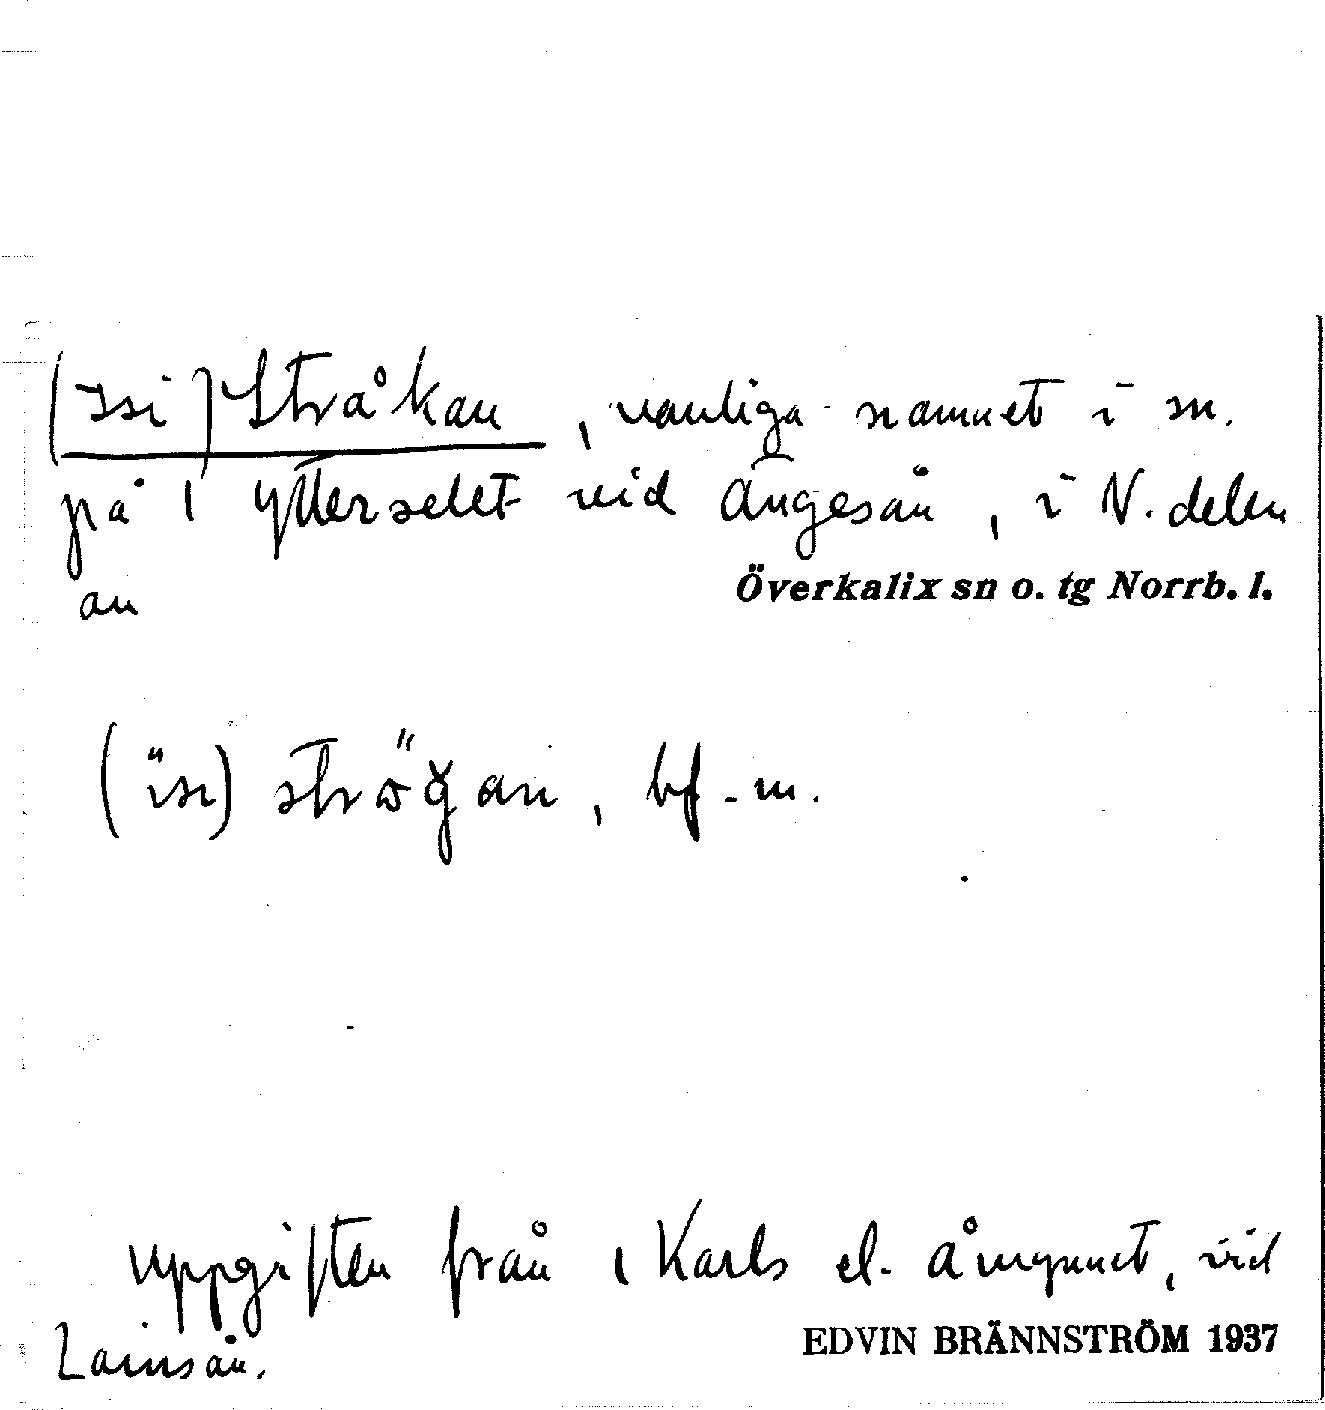 (Isi) Stråkan, vanliga namnet i sn.
på 1 Ytterselet vid Ängesån, i N. delen
av
Överkalix sn o. tg Norrb. l.
bf. m.
uppgiften från 1 Karls el. Åmynnet, vid
Lainsån.
EDVIN BRÄNNSTRÖM 1937